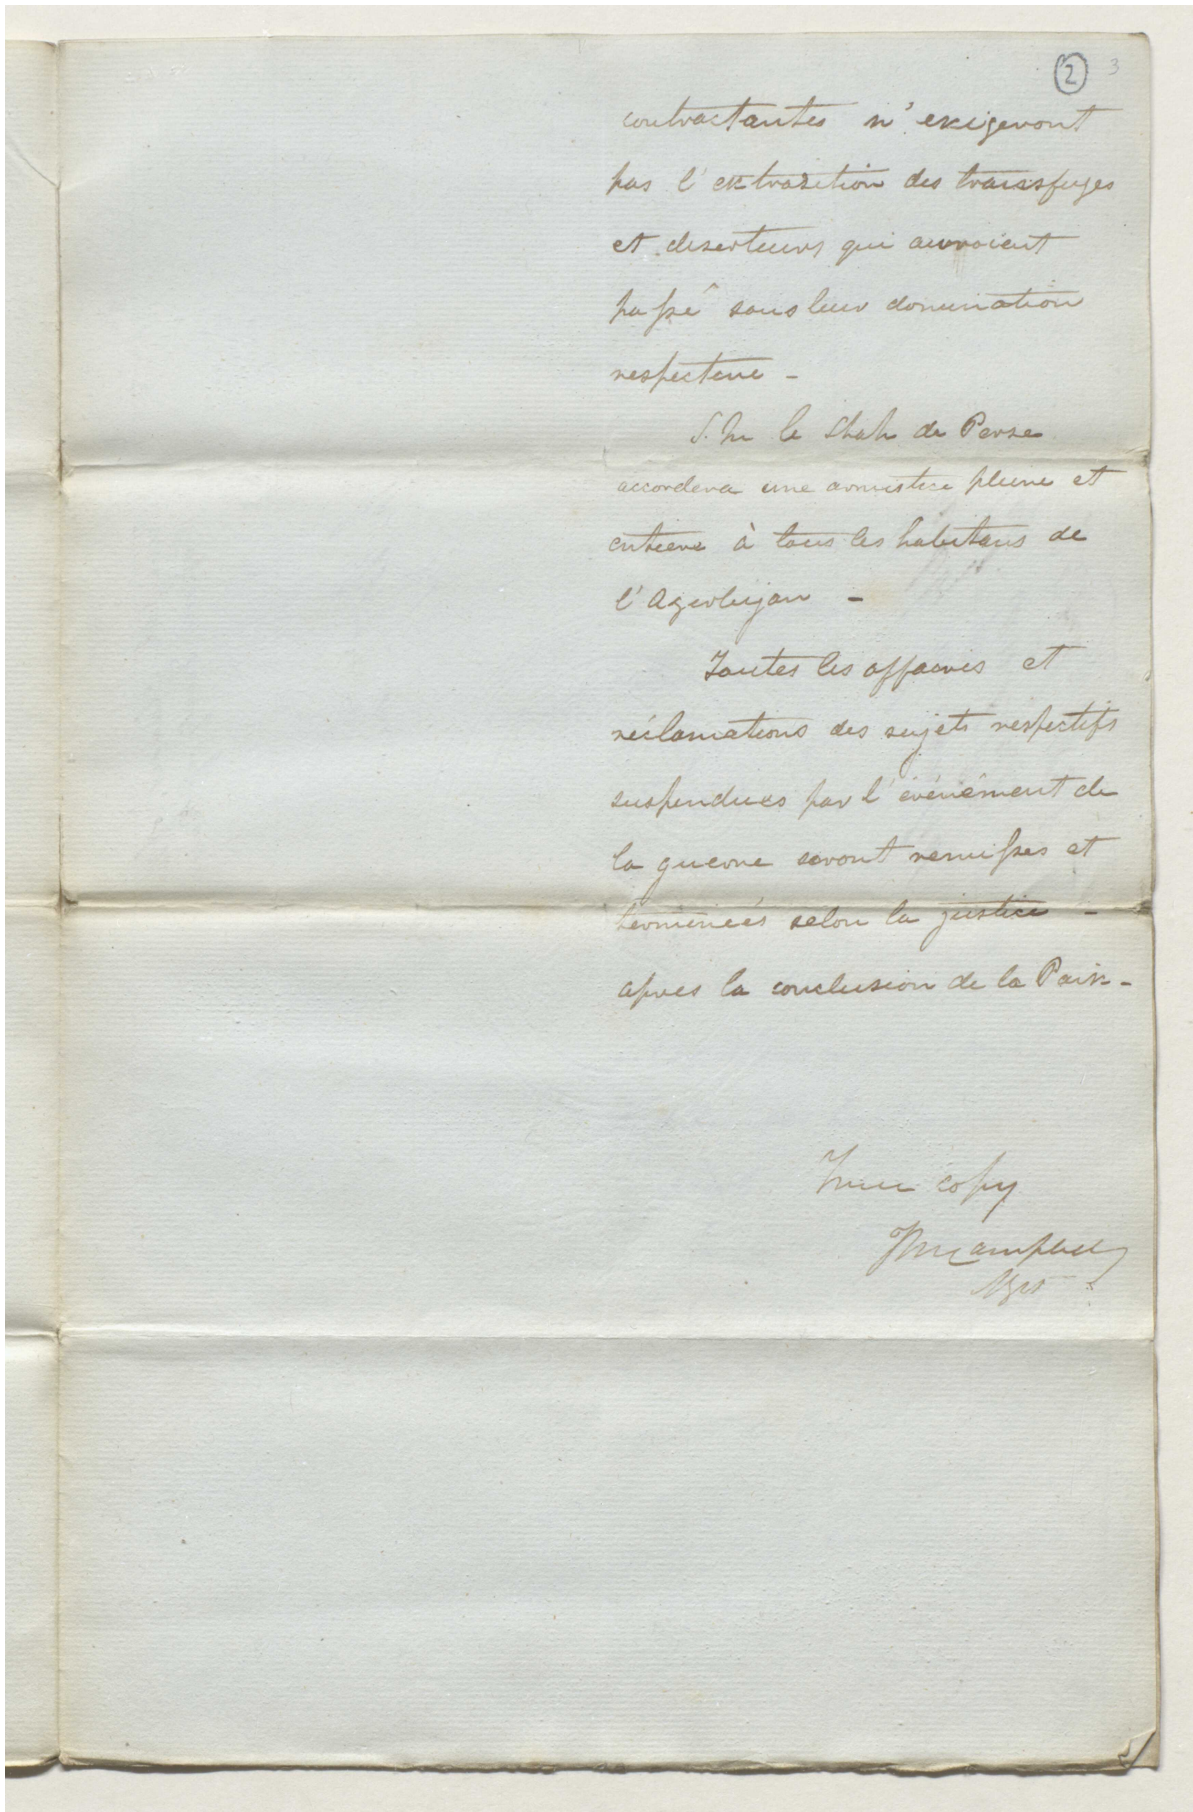 2 3
contractantes n'exigeront
pas l'extradition des transfuges
et deserteurs qui auroient
passé sous leur domination
respective -
S. M le Shah de Perse
accordera une armistice pleine et
entiere à tous les habitans de
l'Azerbijan -
Toutes les affaires et
réclamations des sujets respectifs
suspendues par l'événément de
la guerre seront remisses et
terminées selon la justice -
apres la conclusion de la Paix -
True copy
JMcampbell